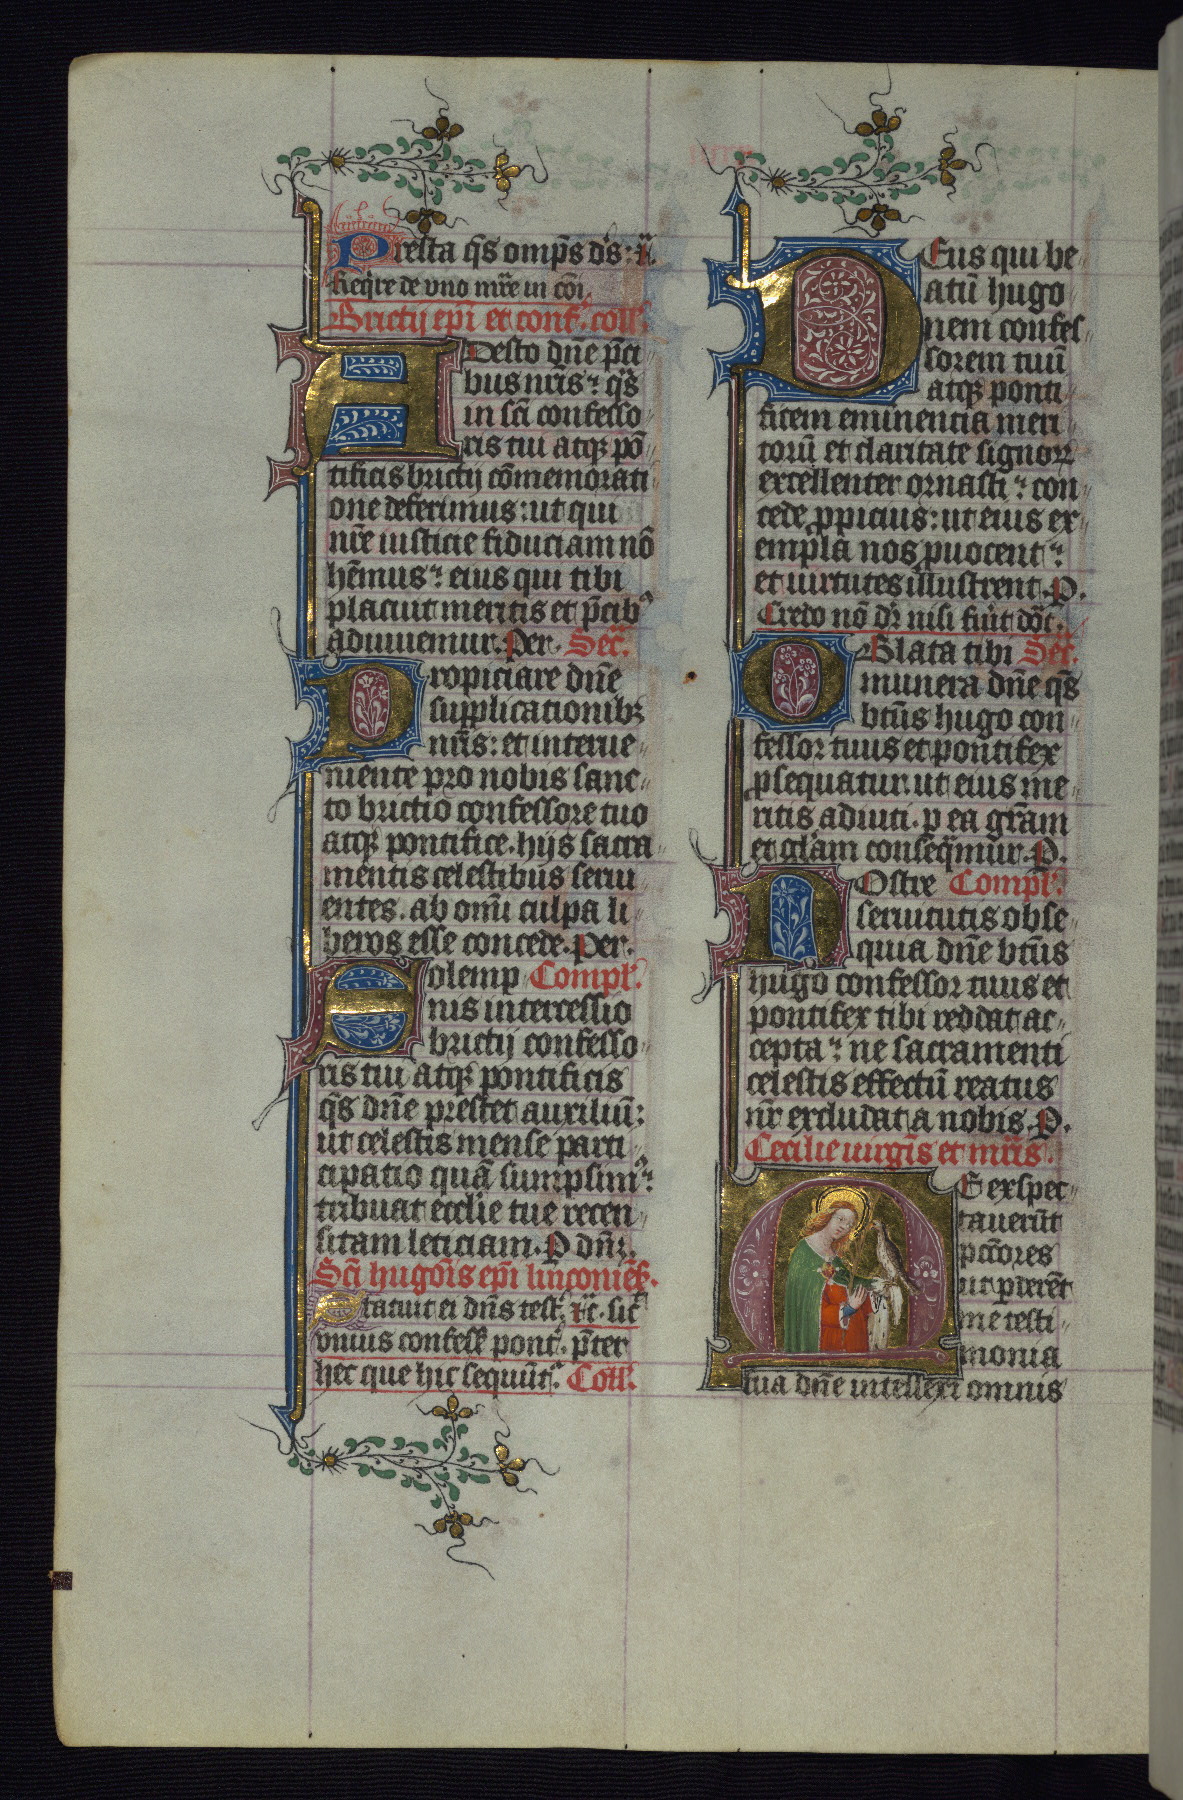 Presta q̄s omp̄s ds: ⁊c̄.
Req̇re de vno mr̄e in cōi
Brictij ep̄i et conf. coll.
ADesto dn̄e p̄ci
bus nr̄is ⁊ q̄s
in sc̄i confesso
ris tui atqꝫ pō
tificis brictij cōmemorati
one deferimus: ut qui
nr̄e iusticie fiduciam nō
hēmus ⁊ eius qui tibi
placuit meritis et p̄cibꝰ
adiuuemur. Per. Sec̄.
Propiciare dn̄e
supplicationibꝫ
nr̄is: et interue
niente pro nobis sanc
to brictio confessore tuo
atqꝫ pontifice. hijs sacra
mentis celestibus serui
entes. ab om̄i culpa li
beros esse concede. Per.
Solemp Compl.
nis intercessio
brictij confesso
ris tui atqꝫ pontificis
q̄s dn̄e prestet auxiliū:
ut celestis mense parti
cipatio quā sumpsimꝰ:
tribuat ecclīe tue recen
sitam leticiam. P dn̄ꝫ.
Sc̄i hugoīs ep̄i linconien̄.
Statuit ei dn̄s test. ⁊c̄. sic̄
vnius confess̄ pont. p̄ter
hec que hic sequūtꝰ. Coll.
DEus qui be
atū hugo
nem confes
sorem tuū
atqꝫ ponti
ficem eminencia meri
torū et claritate signorꝝ
excellenter ornasti ⁊ con
cede ꝓpicius: ut eius ex
empla nos ꝓuocent ⁊
et uirtutes illustrent. P.
Credo nō dr̄ nisi fuīt dōc.
OBlata tibi Sec̄.
munera dn̄e q̄s
btūs hugo con
fessor tuus et pontifex
ꝓsequatur. ut eius me
ritis adiuti. p ea grām
et glām conseq̄mur. P.
NOstre Compl.
seruitutis obse
quia dn̄e btūs
hugo confessor tuus et
pontifex tibi reddat ac
cepta ⁊ ne sacramenti
celestis effectū reatus
nr̄ excludat a nobis. P.
Cecilie uirgīs et mr̄is.
ME exspec
tauerūt
pctōres
ut pderēt
me testi
monia
tua dn̄e intellexi omnis